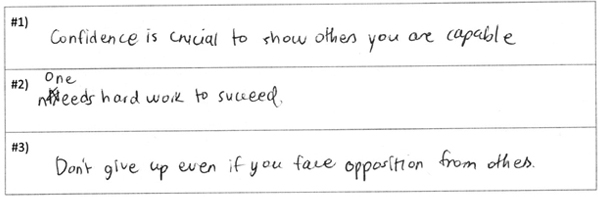 #1)
Confidence is crucial to show others you are capable
#2)
One
needs hard work to succeed.
#3)
Don't give up even if you face opposition from others.